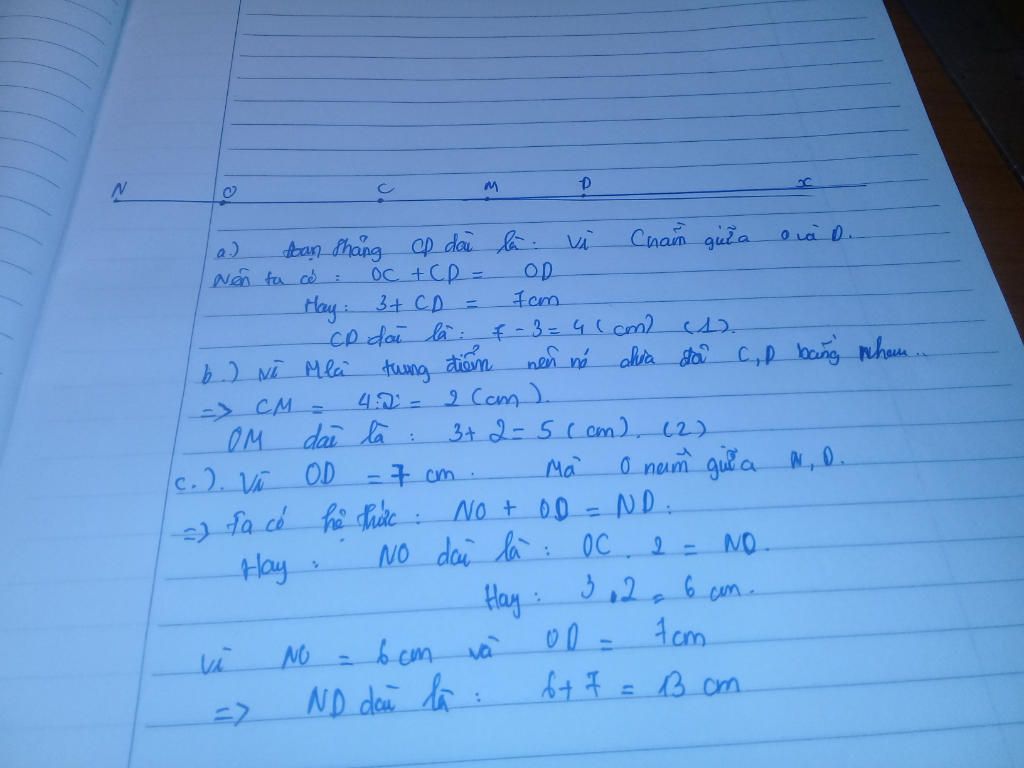 N O C M D x
a.) đoạn thẳng CD dài là: Vì C nằm giữa O và D.
Nên ta có: OC + CD = OD
Hay: 3 + CD = 7cm
CD dài là: 7 - 3 = 4 (cm) (1).
b.) Vì M là trung điểm nên nó chia đôi C, D bằng nhau..
=> CM = 4:2 = 2 (cm).
OM dài là: 3 + 2 = 5 (cm). (2)
c.). Vì OD = 7 cm. Mà O nằm giữa N, D.
=> Ta có hệ thức: NO + OD = ND.
Hay: NO dài là: OC . 2 = NO.
Hay: 3 . 2 = 6 cm.
Vì NO = 6 cm và OD = 7cm
=> ND dài là: 6 + 7 = 13 cm